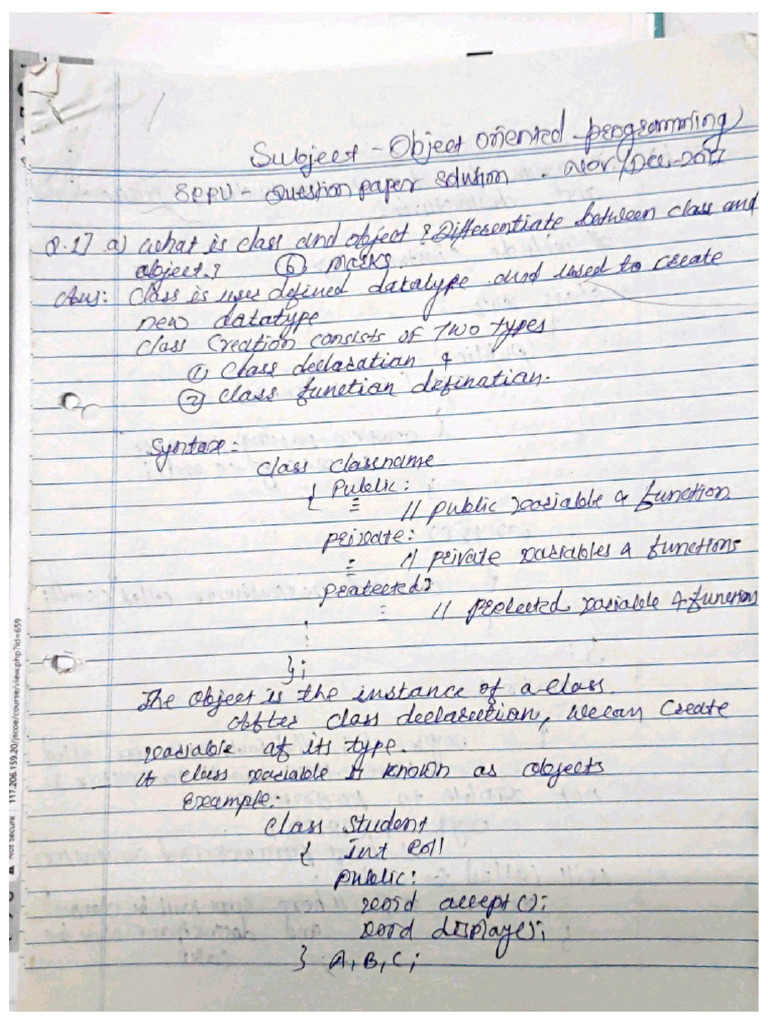 Subject - Object oriented programming
SPPU - Question paper solution - Nov./Dec-2017
Q.1] a) what is class and object? Differentiate between class and
object? (6) marks.
Ans: Class is user defined datatype and used to create
new datatype
class Creation consists of Two types
① Class declaration &
② class function defination.
Syntax:
Class Classname
{ Public:
= // public variable & function
private:
= // private variables & functions
protected:
= // protected variable & functions
};
The object is the instance of a class.
After class declaration, we can create
variable of its type.
A class variable is known as objects
Example:
Class Student
{ int Roll
public:
void accept();
void display();
} A, B, C;
Not secure 117.206.159.20/jscoe/course/view.php?id=659